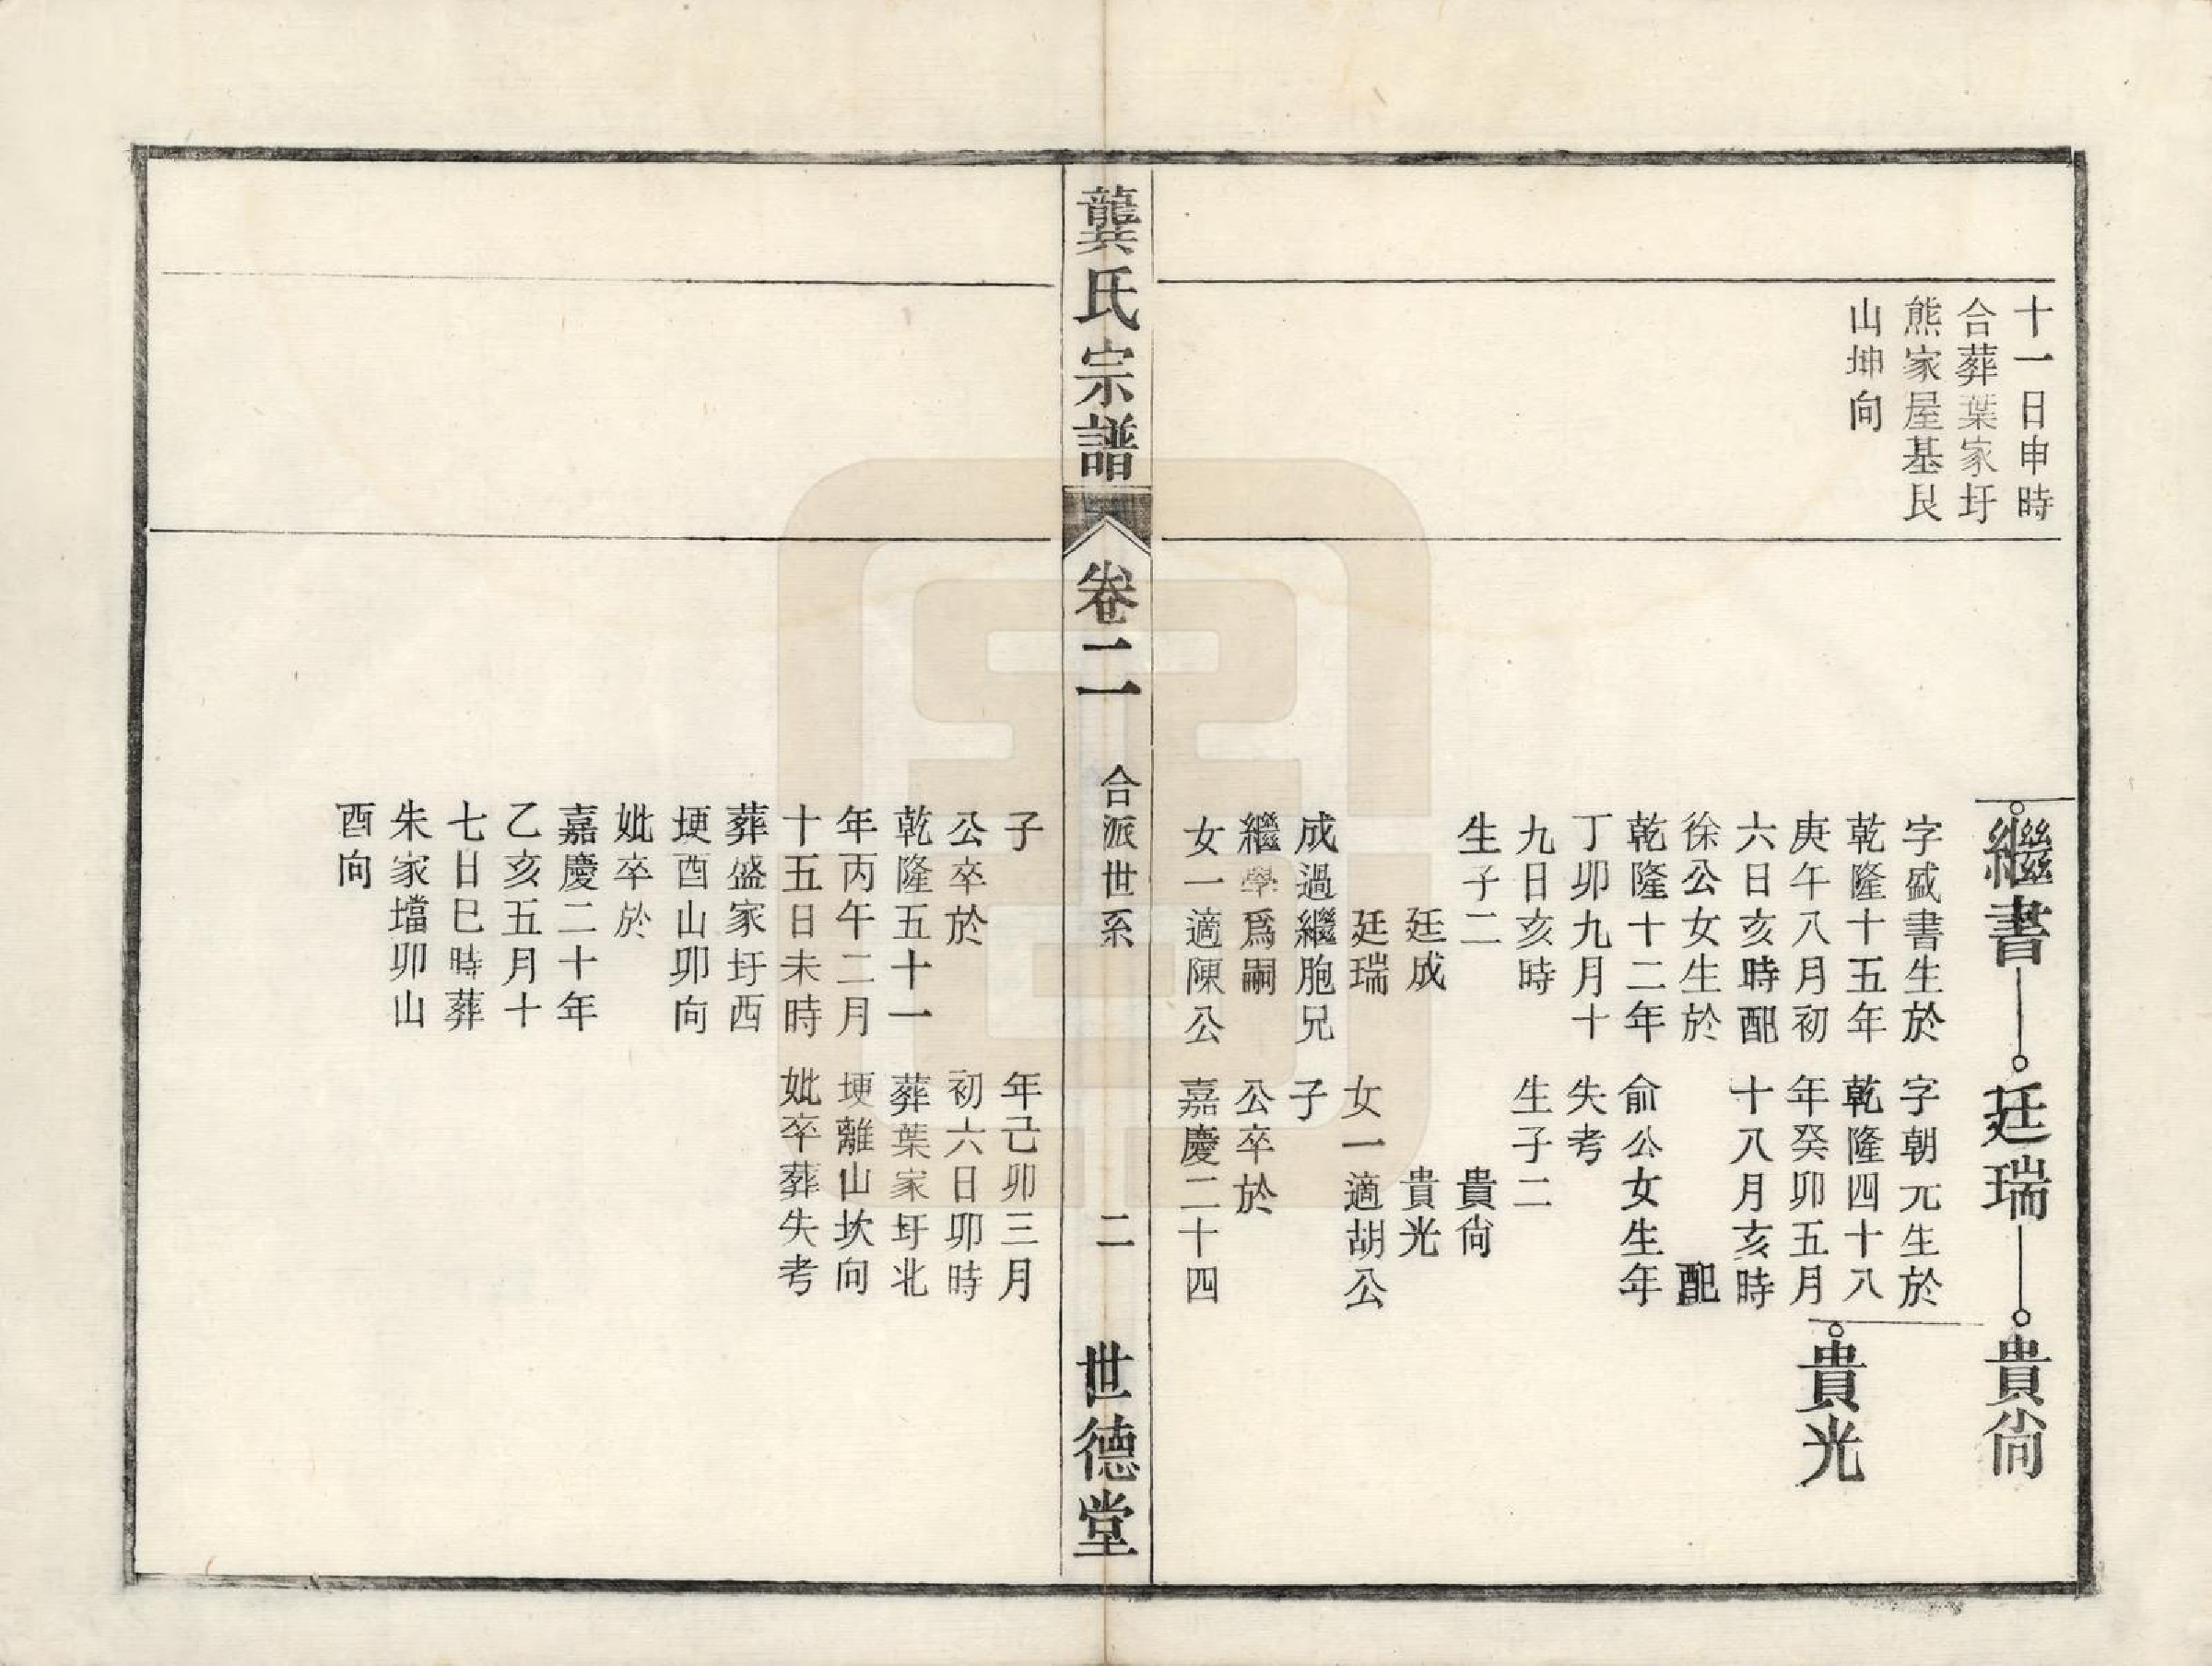 十一日申時
合葬葉家圩
熊家屋基艮
山坤向
繼書
廷瑞
貴尙
貴光
字盛書生於
乾隆十五年
庚午八月初
六日亥時配
徐公女生於
乾隆十二年
丁卯九月十
九日亥時
生子二
廷成
廷瑞
成過繼胞兄
繼學爲嗣
女一適陳公
子
公卒於
乾隆五十一
年丙午二月
十五日未時
葬盛家圩西
埂酉山卯向
妣卒於
嘉慶二十年
乙亥五月十
七日巳時葬
朱家壋卯山
酉向
字朝元生於
乾隆四十八
年癸卯五月
十八月亥時
配
俞公女生年
失考
生子二
貴尙
貴光
女一適胡公
子
公卒於
嘉慶二十四
年己卯三月
初六日卯時
葬葉家圩北
埂離山坎向
妣卒葬失考
龔氏宗譜
卷二
合派世系
二
世德堂